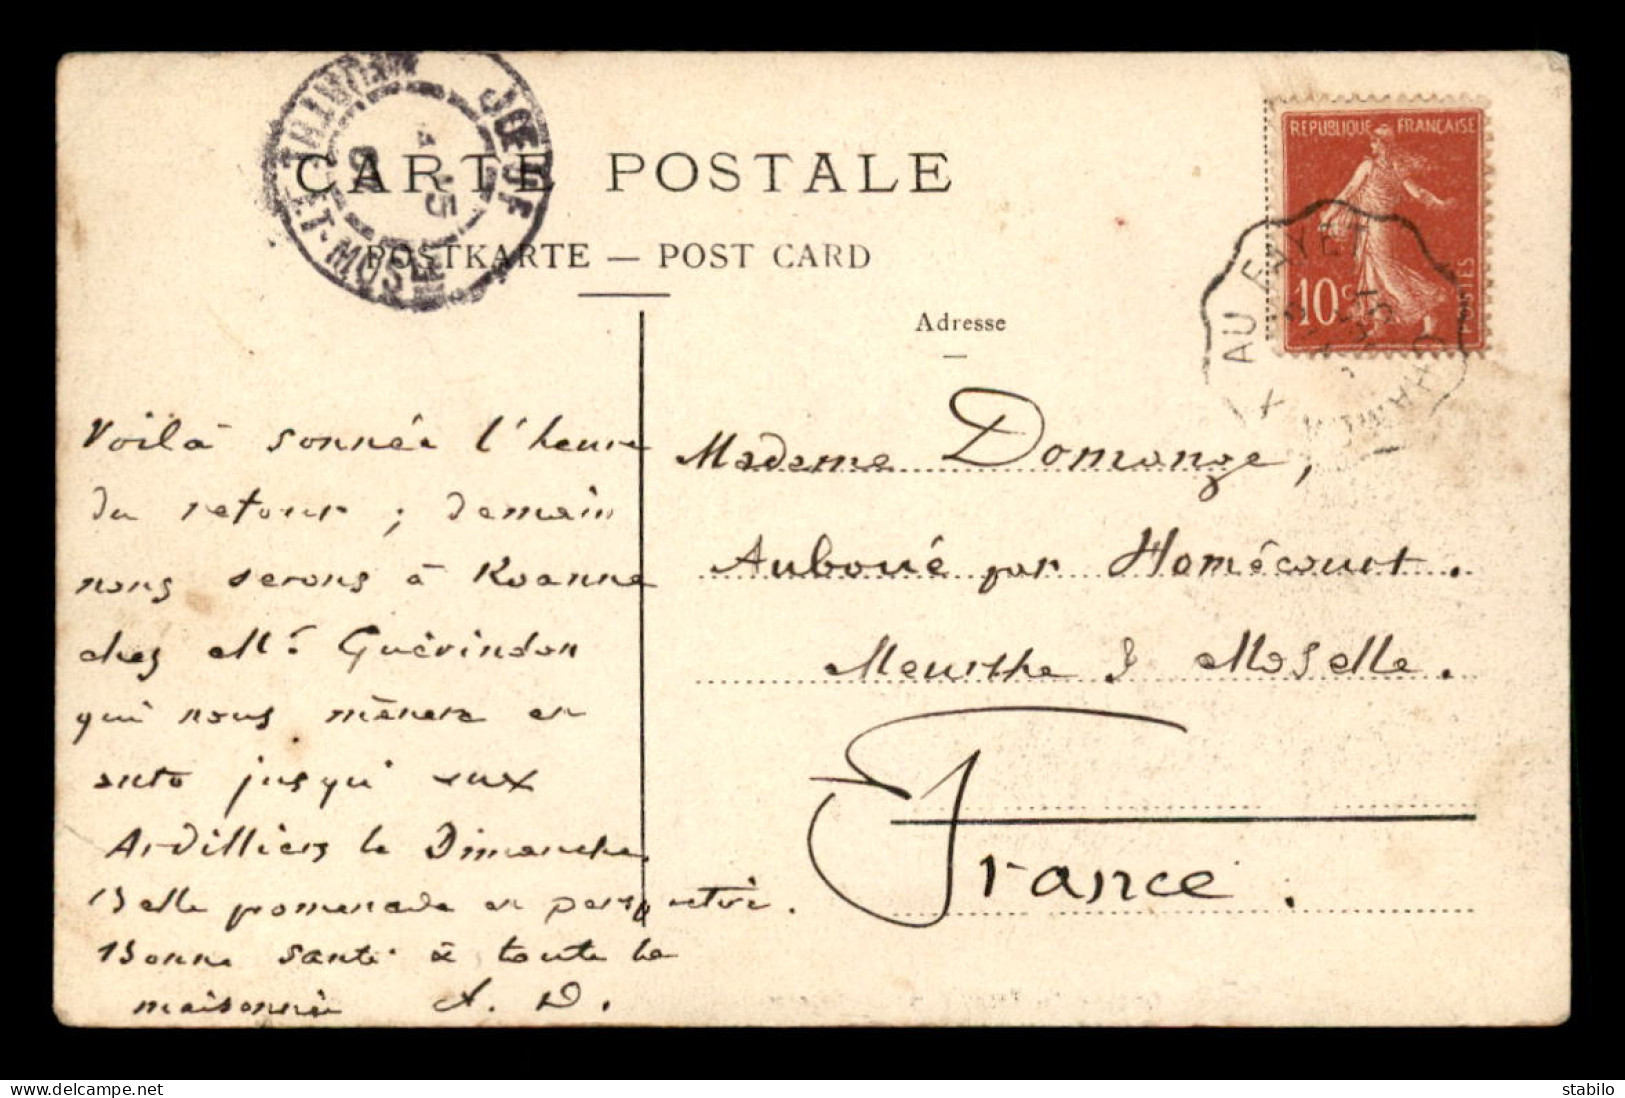 CARTE POSTALE
POSTKARTE — POST CARD
Adresse
JŒUF
MEURTHE-ET-MOSELLE
REPUBLIQUE FRANÇAISE
10c
POSTES
AU FAYET
Voilà sonnée l'heure
du retour ; demain
nous serons à Roanne
chez Mr Guérindon
qui nous mènera en
auto jusqu'aux
Ardilliers le Dimanche.
Belle promenade en perspective.
Bonne santé à toute la
maisonnée A. D.
Madame Domange,
Auboué par Homécourt.
Meurthe & Moselle.
France.
stabilo | delcampe.net